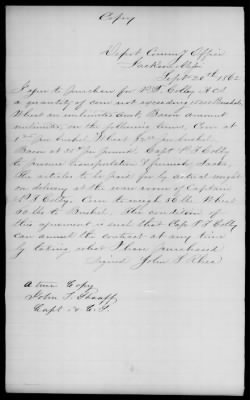 Copy
Depot Commy Office
Jackson Miss
Sept 20th 1862
I agree to purchase for V. F. Colby A C S
a quantity of corn not exceeding 15000 Bushels
Wheat an unlimited amt, Bacon amount
unlimited, on the following terms, Corn at
per bushel, Wheat per bushel,
Bacon at per pound. Capt V. F. Colby
to procure transportation & furnish Sacks.
The articles to be paid for by actual weight
on delivery at the ware room of Captain
V F Colby. Corn to weigh 56 lbs Wheat
60 lbs to Bushel. The condition of
this agreement is such that Capt V F Colby
can annul the contract at any time
by taking what I have purchased
Signed John S. Rhea
A true Copy
John T. Shaaff
Capt & C. S.